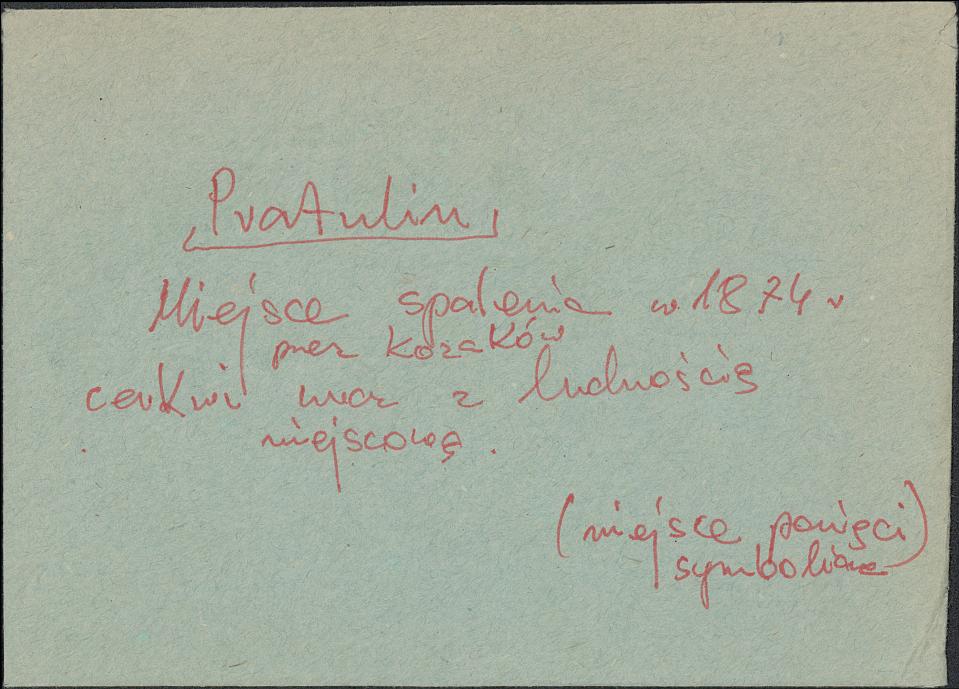 Pratulin
Miejsce spalenia w 1874 r
przez Kozaków
cerkwi wraz z ludnością
miejscową.
(miejsce pamięci
symboliczne)